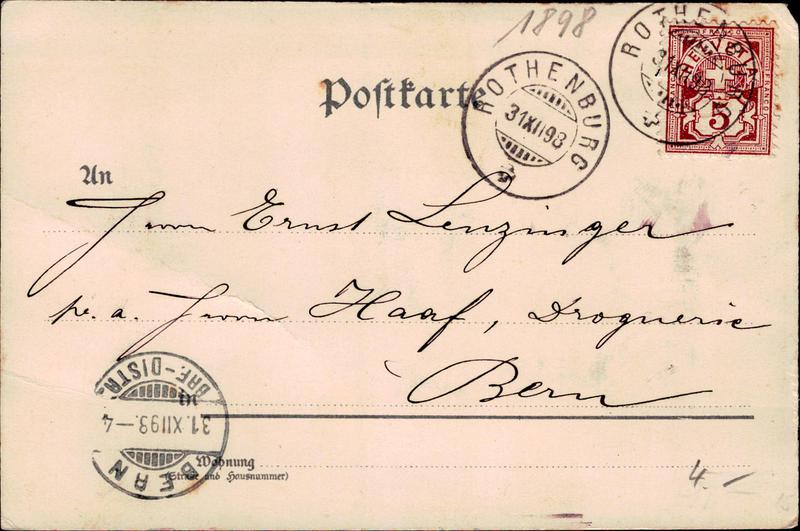 1898
Postkarte
ROTHENBURG
31 XII 98
ROTHENBURG
HELVETIA
FRANCO
5
An
Herrn Ernst Lenzinger
p. a. Herrn Haaf, Droguerie
Bern
in
BRE-DISTR.
31.XII98.-4
BERN
Wohnung
(Straße und Hausnummer)
4.-